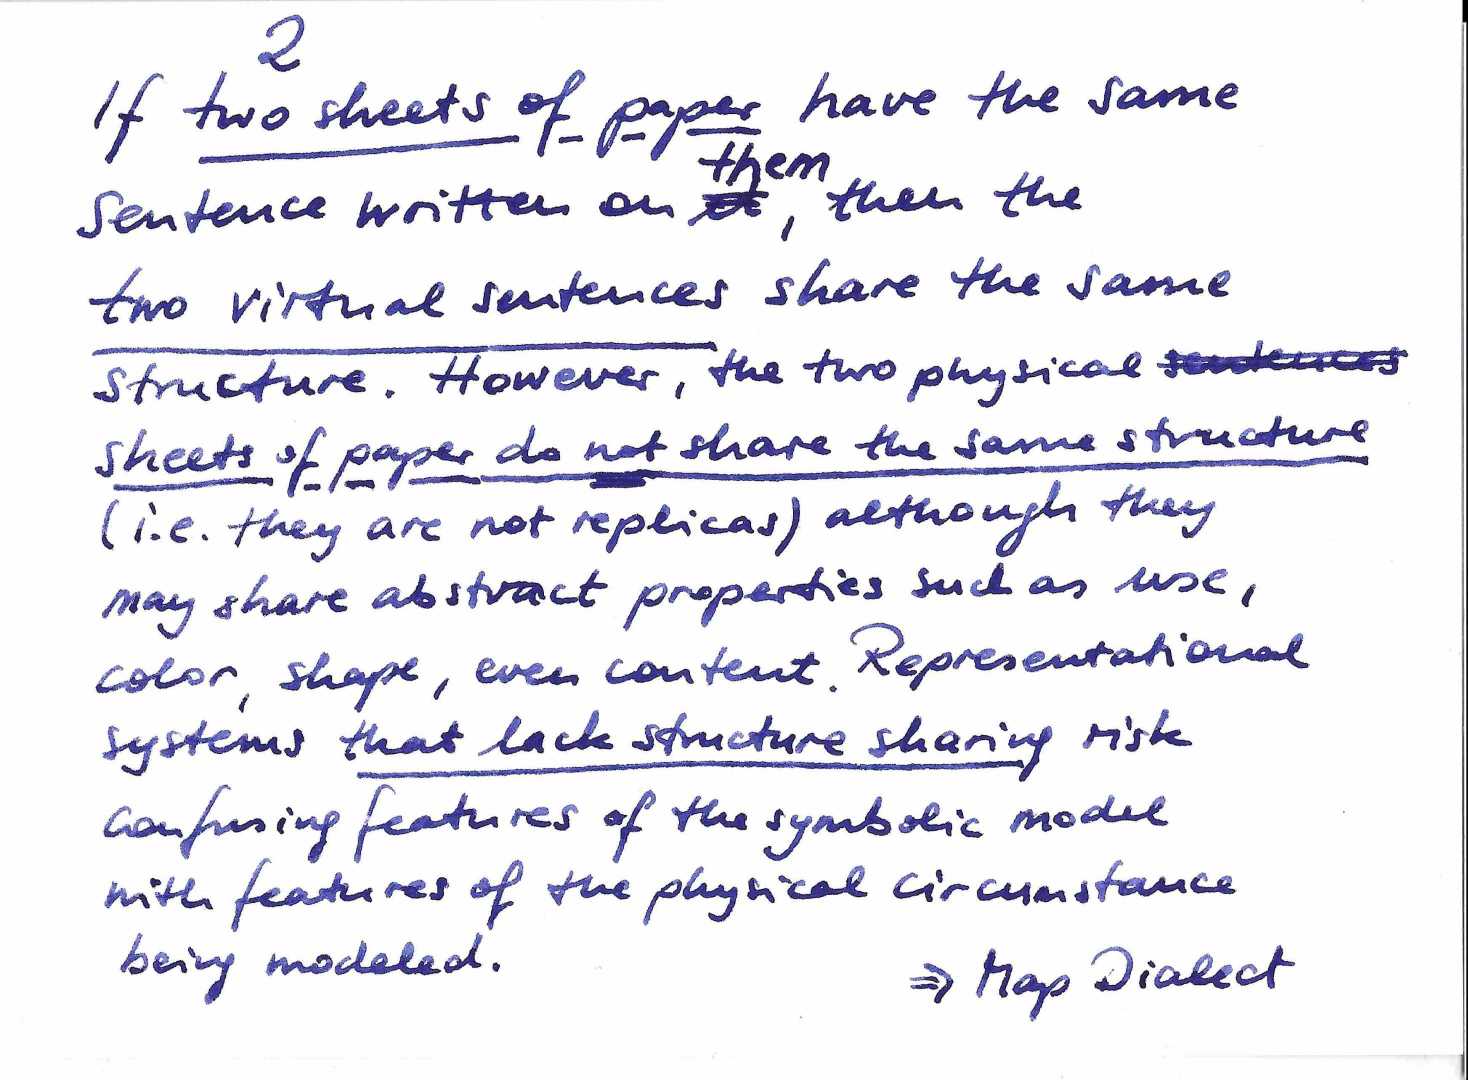 2
If two sheets of paper have the same
them
sentence written on it, then the
two virtual sentences share the same
structure. However, the two physical sentences
sheets of paper do not share the same structure
(i.e. they are not replicas) although they
may share abstract properties such as use,
color, shape, even content. Representational
systems that lack structure sharing risk
confusing features of the symbolic model
with features of the physical circumstance
being modeled.
⇒ Map Dialect